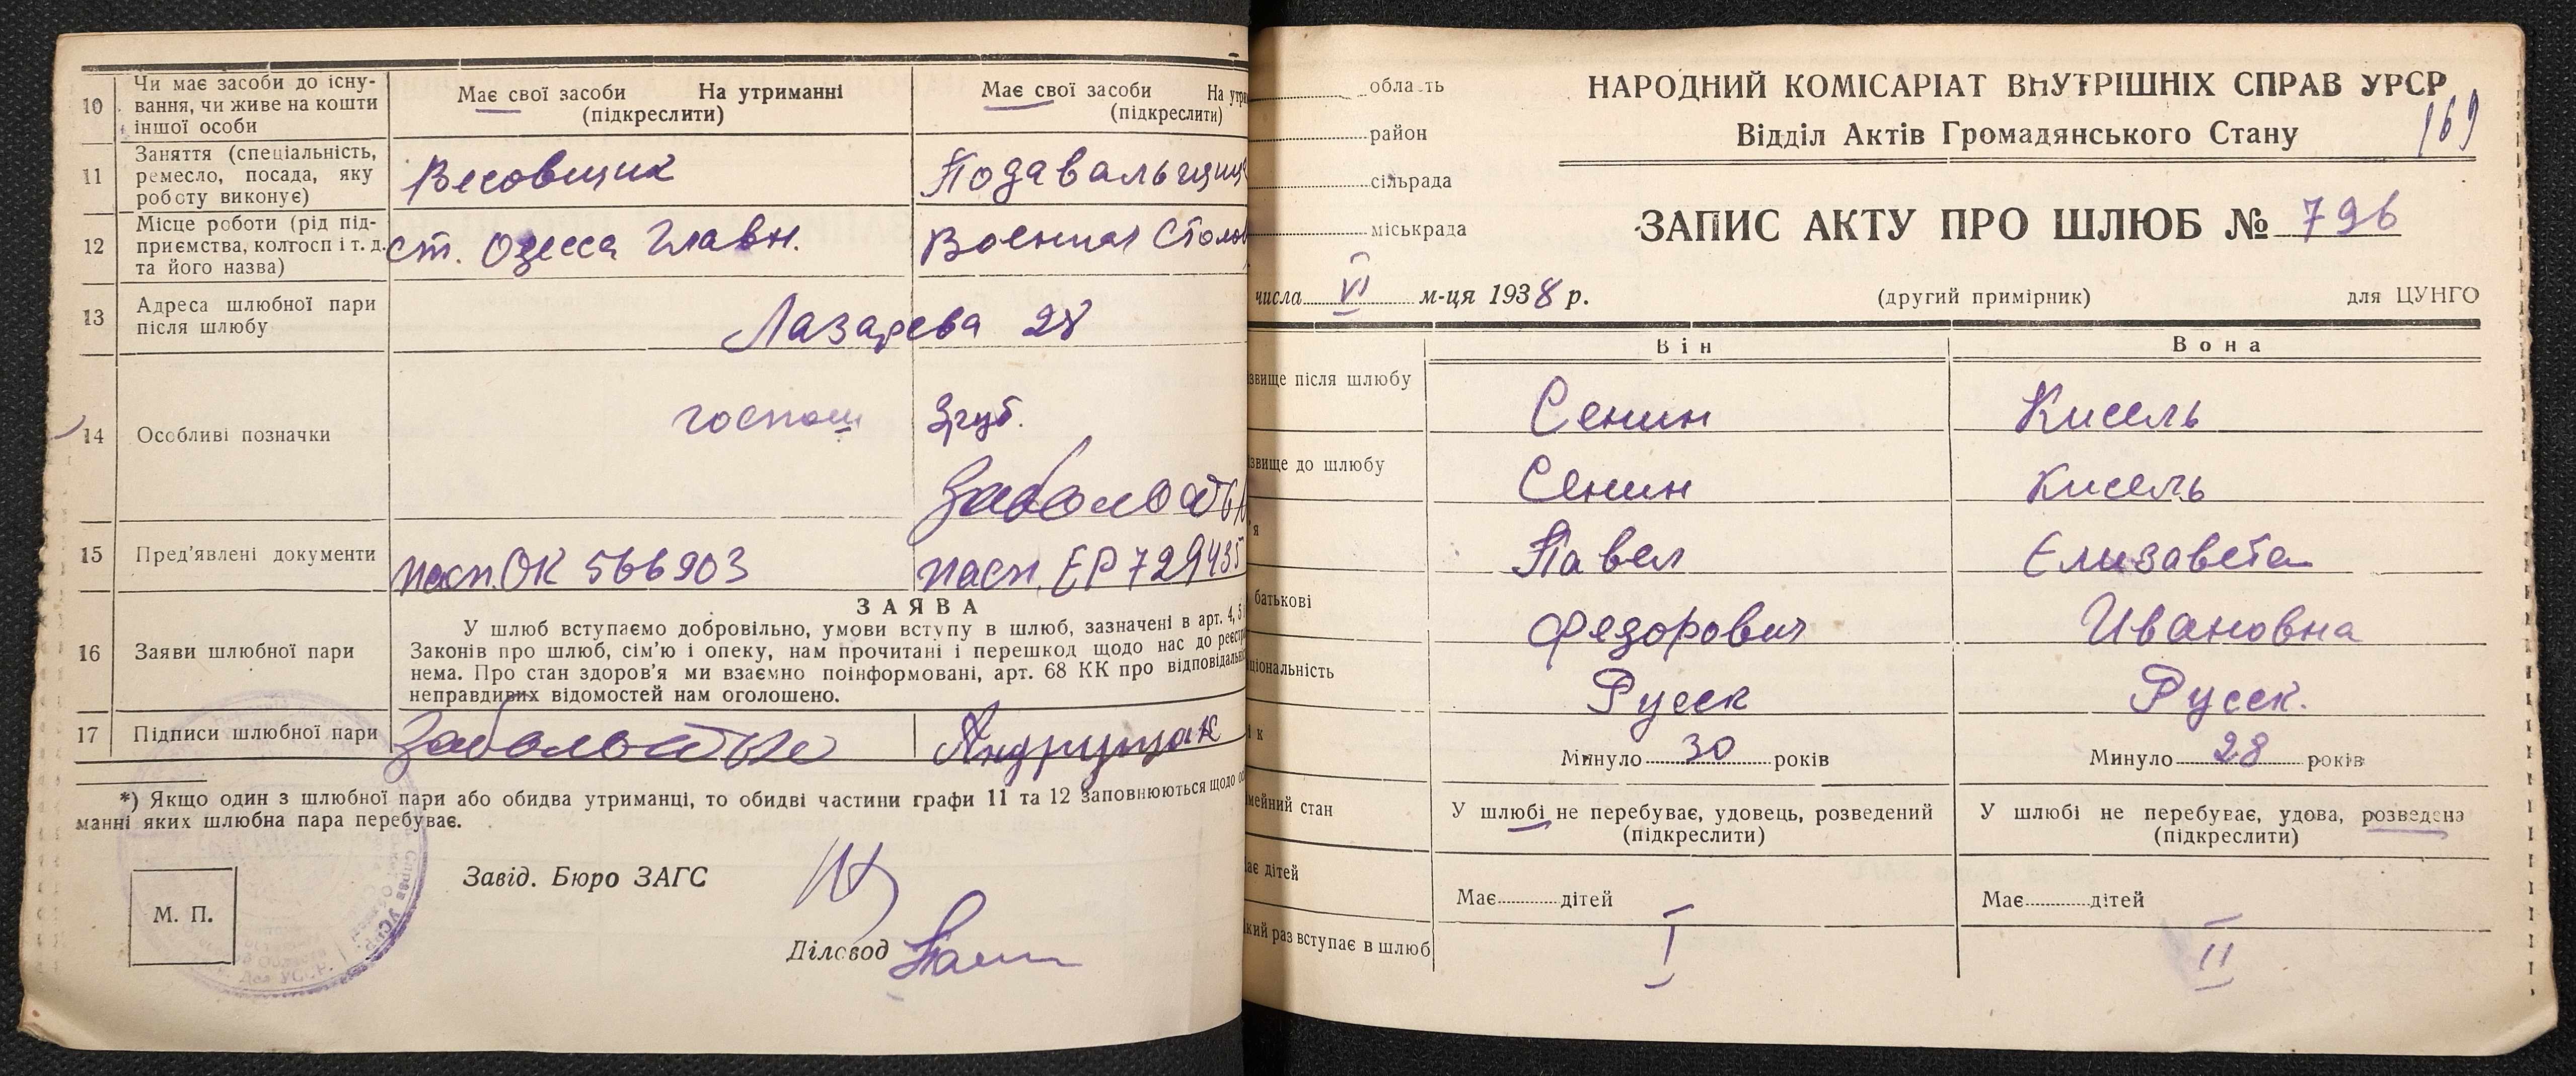 10
Чи має засоби до існу-
вання, чи живе на кошти
іншої особи
Має свої засоби На утриманні
(підкреслити)
Має свої засоби На утри
(підкреслити)
11
Заняття (спеціальність,
ремесло, посада, яку
роботу виконує)
Весовщик
Подавальщица
12
Місце роботи (рід під-
приємства, колгосп і т. д.
та його назва)
ст. Одесса Главн.
Военная Столов
13
Адреса шлюбної пари
після шлюбу
Лазарева 28
14
Особливі позначки
15
Пред'явлені документи
пасп. ОК 566903
пасп. ЕР 729435
ЗАЯВА
16
Заяви шлюбної пари
У шлюб вступаємо добровільно, умови вступу в шлюб, зазначені в арт. 4, 5
Законів про шлюб, сім'ю і опеку, нам прочитані і перешкод щодо нас до реєстра
нема. Про стан здоров'я ми взаємно поінформовані, арт. 68 КК про відповідальн
неправдивих відомостей нам оголошено.
17
Підписи шлюбної пари
*) Якщо один з шлюбної пари або обидва утриманці, то обидві частини графи 11 та 12 заповнюються щодо
манні яких шлюбна пара перебуває.
М. П.
Завід. Бюро ЗАГС
Діловод
область
район
сільрада
міськрада
НАРОДНИЙ КОМІСАРІАТ ВНУТРІШНІХ СПРАВ УРСР
Відділ Актів Громадянського Стану
169
ЗАПИС АКТУ ПРО ШЛЮБ № 796
числа VI м-ця 1938 р.
(другий примірник)
для ЦУНГО
Він
Вона
звище після шлюбу
Сенин
Кисель
звище до шлюбу
Сенин
Кисель
'я
Павел
Єлизавета
батькові
Федорович
Ивановна
ціональність
Русск
Русск.
ік
Минуло 30 років
Минуло 28 років
мейний стан
У шлюбі не перебуває, удовець, розведений
(підкреслити)
У шлюбі не перебуває, удова, розведена
(підкреслити)
ає дітей
Має дітей
Має дітей
кий раз вступає в шлюб
I
II